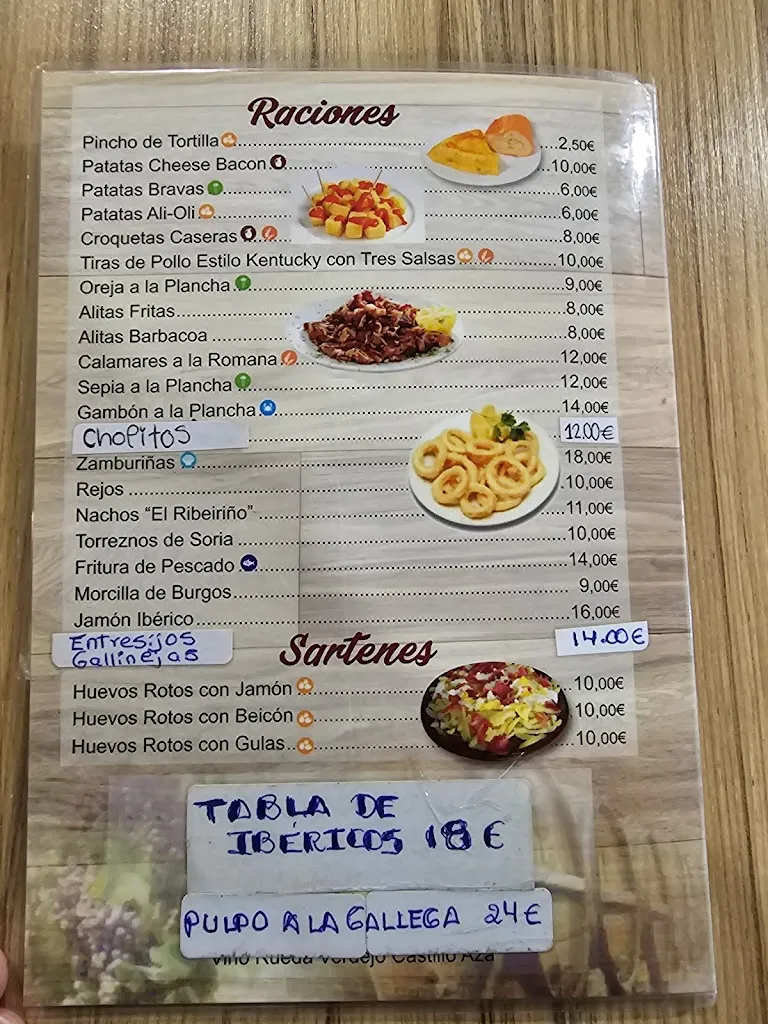 Raciones
Pincho de Tortilla 2,50€
Patatas Cheese Bacon 10,00€
Patatas Bravas 6,00€
Patatas Ali-Oli 6,00€
Croquetas Caseras 8,00€
Tiras de Pollo Estilo Kentucky con Tres Salsas 10,00€
Oreja a la Plancha 9,00€
Alitas Fritas 8,00€
Alitas Barbacoa 8,00€
Calamares a la Romana 12,00€
Sepia a la Plancha 12,00€
Gambón a la Plancha 14,00€
Chopitos 12.00€
Zamburiñas 18,00€
Rejos 10,00€
Nachos “El Ribeiriño” 11,00€
Torreznos de Soria 10,00€
Fritura de Pescado 14,00€
Morcilla de Burgos 9,00€
Jamón Ibérico 16,00€
Entresijos
Gallinejas 14.00€
Sartenes
Huevos Rotos con Jamón 10,00€
Huevos Rotos con Beicón 10,00€
Huevos Rotos con Gulas 10,00€
TABLA DE
IBÉRICOS 18€
PULPO A LA GALLEGA 24€
Vino Rueda Verdejo Castillo Aza